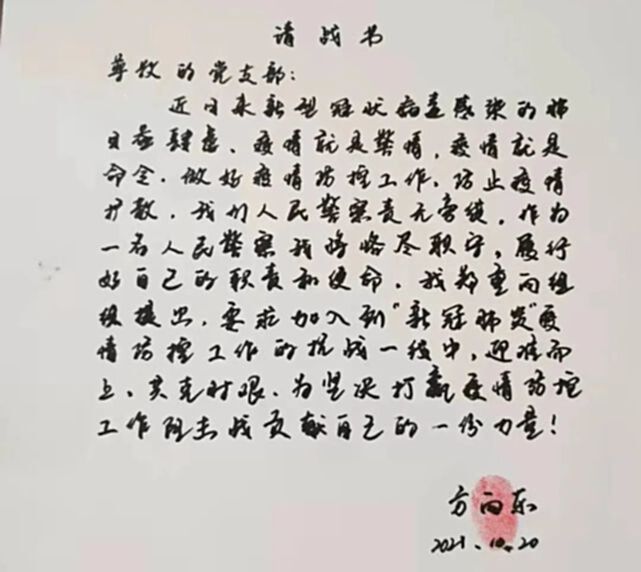 请战书
尊敬的党支部：
近日来新型冠状病毒感染的肺
日益肆虐、疫情就是警情，疫情就是
命令。做好疫情防控工作、防止疫情
扩散，我们人民警察责无旁贷，作为
一名人民警察我将恪尽职守，履行
好自己的职责和使命。我郑重向组
组提出，要求加入到“新冠肺炎”疫
情防控工作的抗战一线中，迎难而
上、共克时艰、为坚决打赢疫情防控
工作阻击战贡献自己的一份力量！
方向东
2021.10.20